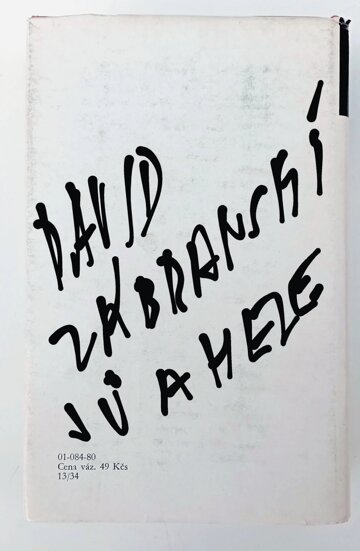 DAVID
ZÁBRANSKÍ
JŮ A HEZE
01-084-80
Cena váz. 49 Kčs
13/34